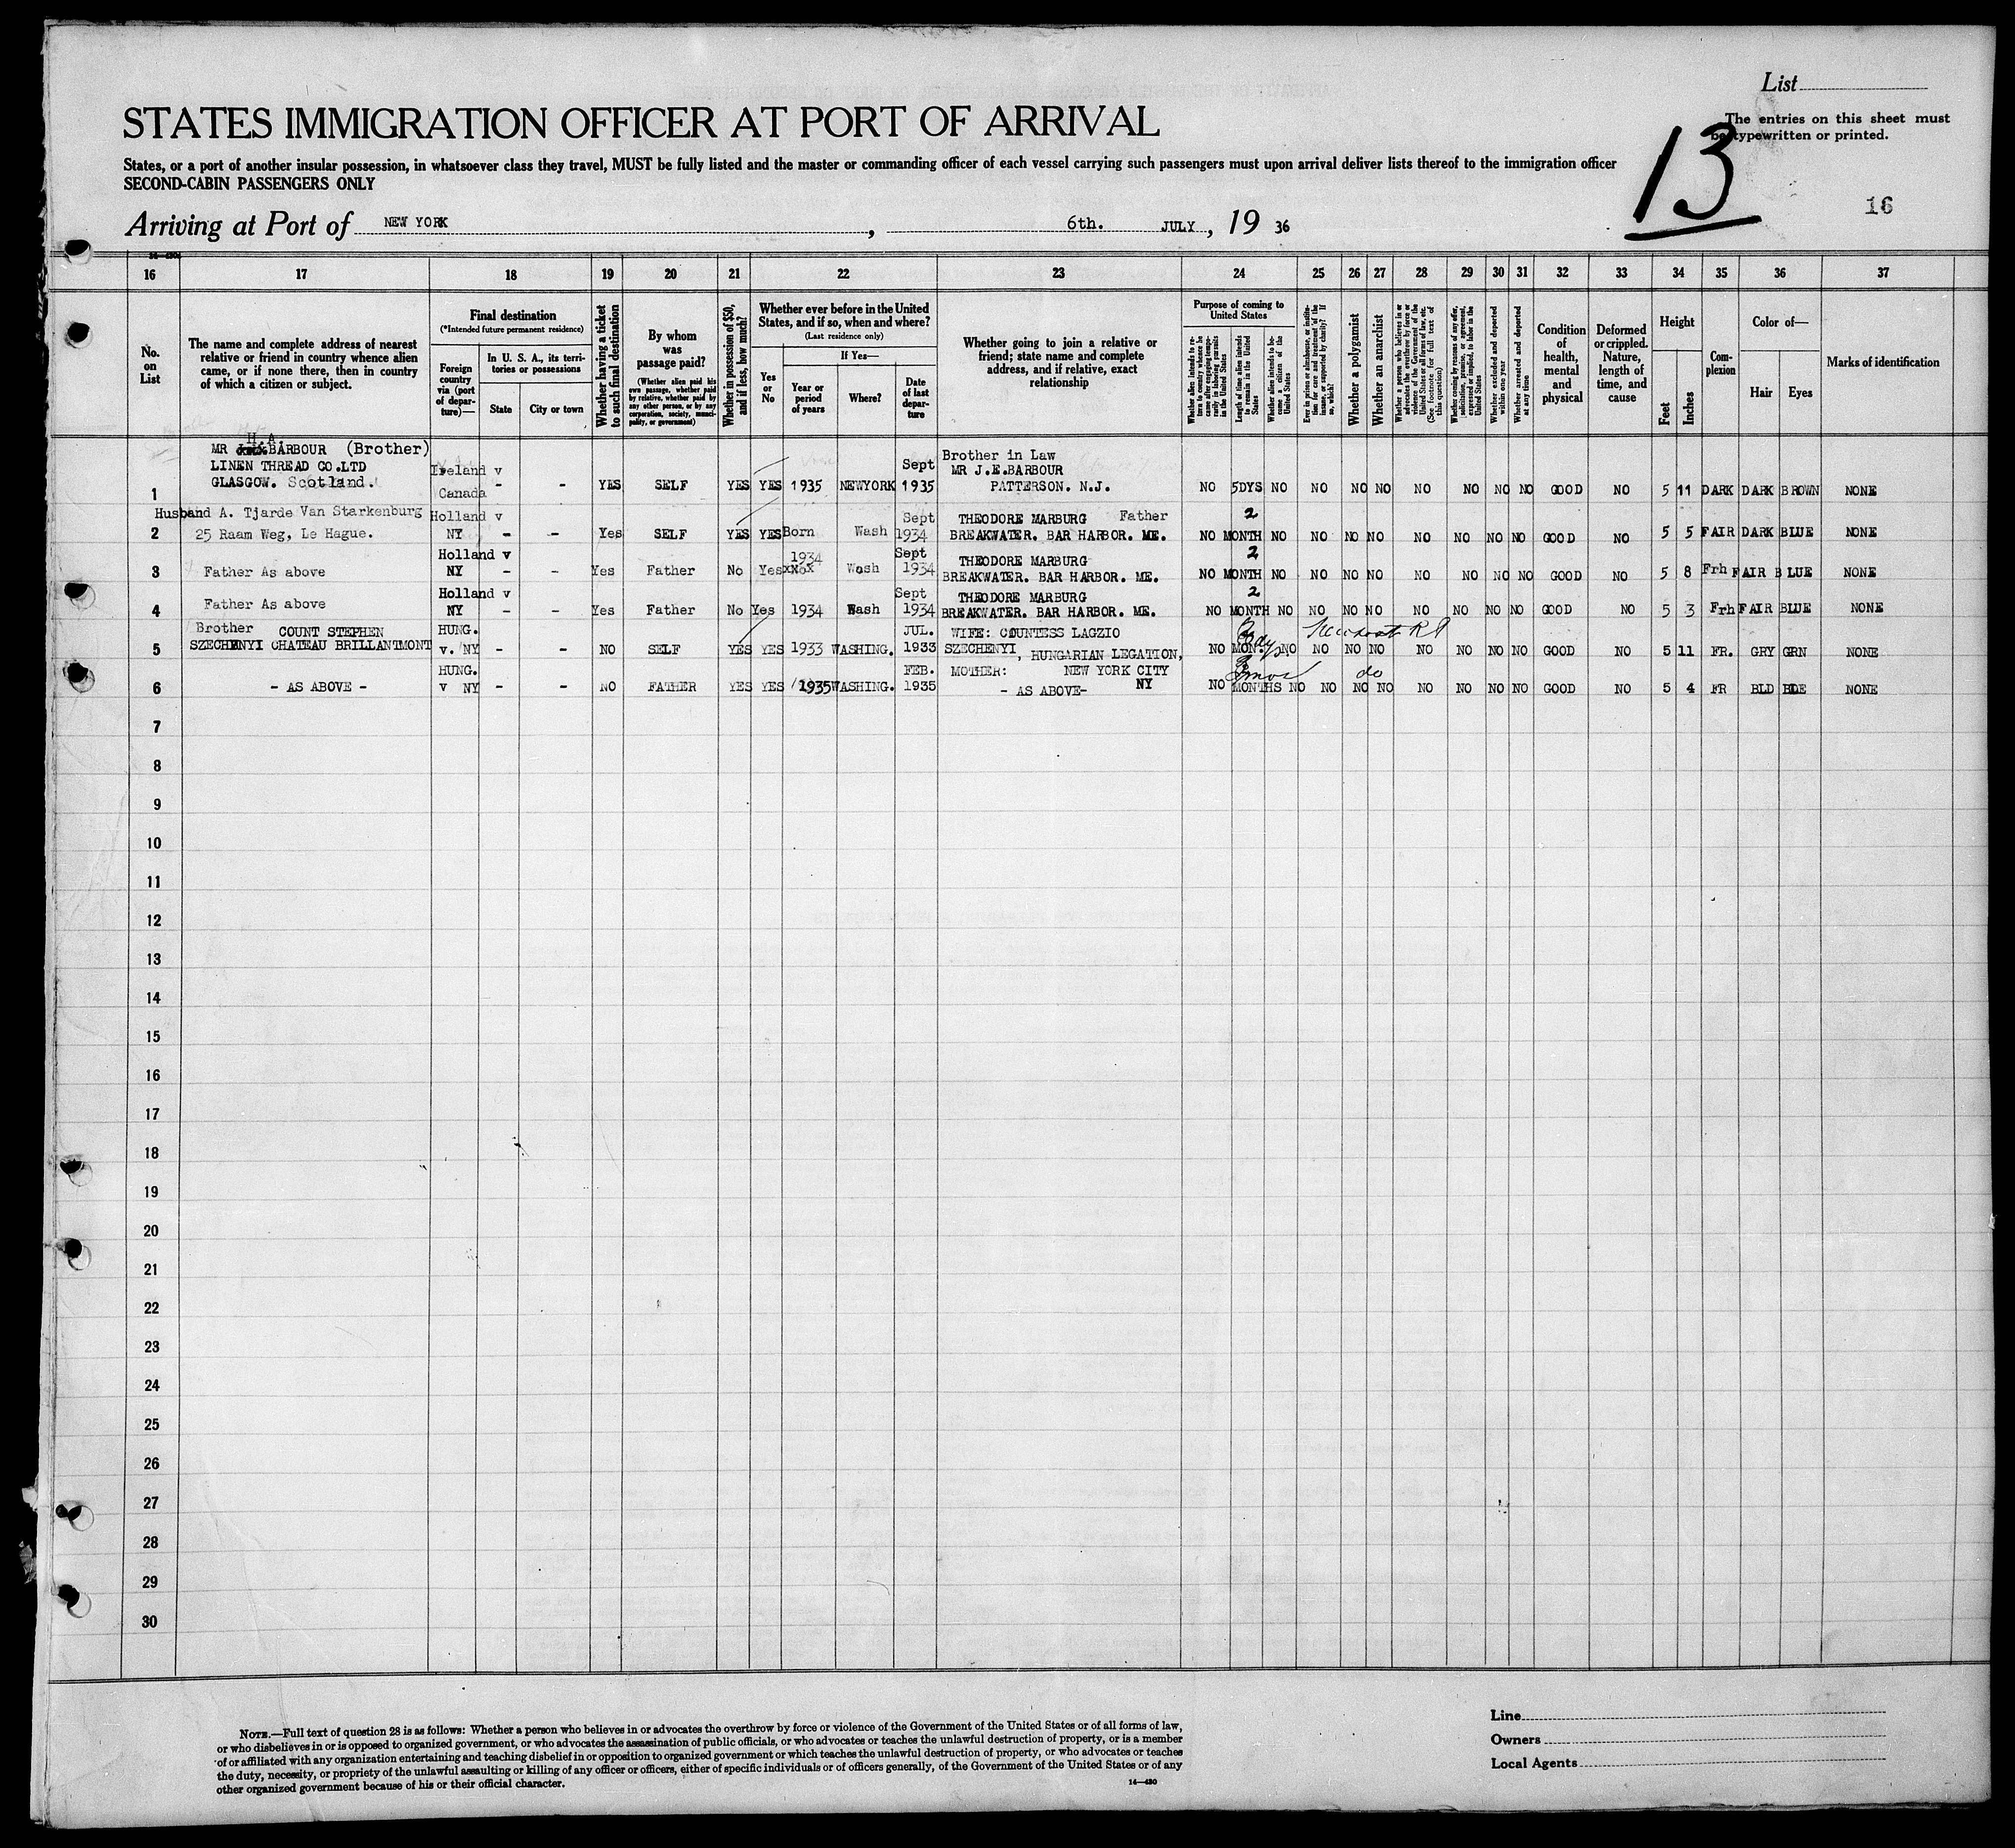 List
The entries on this sheet must
be typewritten or printed.
STATES IMMIGRATION OFFICER AT PORT OF ARRIVAL
13
States, or a port of another insular possession, in whatsoever class they travel, MUST be fully listed and the master or commanding officer of each vessel carrying such passengers must upon arrival deliver lists thereof to the immigration officer
SECOND-CABIN PASSENGERS ONLY
16
Arriving at Port of NEW YORK, 6th. JULY, 19 36
16 17 18 19 20 21 22 23 24 25 26 27 28 29 30 31 32 33 34 35 36 37
No. on List
The name and complete address of nearest relative or friend in country whence alien came, or if none there, then in country of which a citizen or subject.
Final destination
(*Intended future permanent residence)
Foreign country via (port of departure)—
In U. S. A., its territories or possessions
State
City or town
Whether having a ticket to such final destination
By whom was passage paid?
(Whether alien paid his own passage, whether paid by relative, whether paid by any other person, or by any corporation, society, municipality, or government)
Whether in possession of $50, and if less, how much?
Whether ever before in the United States, and if so, when and where?
(Last residence only)
Yes or No
If Yes—
Year or period of years
Where?
Date of last departure
Whether going to join a relative or friend; state name and complete address, and if relative, exact relationship
Purpose of coming to United States
Whether alien intends to return to country whence he came after engaging temporarily in laboring pursuits in the United States
Length of time alien intends to remain in the United States
Whether alien intends to become a citizen of the United States
Ever in prison or almshouse, or institution for care and treatment of the insane, or supported by charity? If so, which?
Whether a polygamist
Whether an anarchist
Whether a person who believes in or advocates the overthrow by force or violence of the Government of the United States or all forms of law, etc. (See footnote for full text of this question)
Whether coming by reasons of any offer, solicitation, promise, or agreement, expressed or implied, to labor in the United States
Whether excluded and deported within one year
Whether arrested and deported at any time
Condition of health, mental and physical
Deformed or crippled. Nature, length of time, and cause
Height
Feet
Inches
Complexion
Color of—
Hair
Eyes
Marks of identification
H.A.
MR BARBOUR (Brother)
LINEN THREAD CO.LTD
GLASGOW. Scotland.
1 Ireland v Canada - - YES SELF YES YES 1935 NEWYORK Sept 1935 Brother in Law MR J.E.BARBOUR PATTERSON. N.J. NO 5DYS NO NO NO NO NO NO NO NO GOOD NO 5 11 DARK DARK BROWN NONE
Husband A. Tjarde Van Starkenburg
2 25 Raam Weg, Le Hague. Holland v NY - - Yes SELF YES YES Born Wash Sept 1934 THEODORE MARBURG Father BREAKWATER. BAR HARBOR. ME. NO 2 MONTH NO NO NO NO NO NO NO NO GOOD NO 5 5 FAIR DARK BLUE NONE
3 Father As above Holland v NY - - Yes Father No Yes 1934 Wash Sept 1934 THEODORE MARBURG BREAKWATER. BAR HARBOR. ME. NO 2 MONTH NO NO NO NO NO NO NO NO GOOD NO 5 8 Frh FAIR BLUE NONE
4 Father As above Holland v NY - - Yes Father No Yes 1934 Wash Sept 1934 THEODORE MARBURG BREAKWATER. BAR HARBOR. ME. NO 2 MONTH NO NO NO NO NO NO NO NO GOOD NO 5 3 Frh FAIR BLUE NONE
Brother COUNT STEPHEN
5 SZECHENYI CHATEAU BRILLANTMONT HUNG. v. NY - - NO SELF YES YES 1933 WASHING. JUL. 1933 WIFE: COUNTESS LAGZIO SZECHENYI, HUNGARIAN LEGATION, NO MON. NO Newport R I NO NO NO NO NO NO NO GOOD NO 5 11 FR. GRY GRN NONE
6 - AS ABOVE - HUNG. v NY - - NO FATHER YES YES 1935 WASHING. FEB. 1935 MOTHER: NEW YORK CITY - AS ABOVE- NY NO MONTHS NO NO do NO NO NO NO NO NO GOOD NO 5 4 FR BLD BLE NONE
7
8
9
10
11
12
13
14
15
16
17
18
19
20
21
22
23
24
25
26
27
28
29
30
NOTE.—Full text of question 28 is as follows: Whether a person who believes in or advocates the overthrow by force or violence of the Government of the United States or of all forms of law,
or who disbelieves in or is opposed to organized government, or who advocates the assassination of public officials, or who advocates or teaches the unlawful destruction of property, or is a member
of or affiliated with any organization entertaining and teaching disbelief in or opposition to organized government or which teaches the unlawful destruction of property, or who advocates or teaches
the duty, necessity, or propriety of the unlawful assaulting or killing of any officer or officers, either of specific individuals or of officers generally, of the Government of the United States or of any
other organized government because of his or their official character.
14—430
Line
Owners
Local Agents